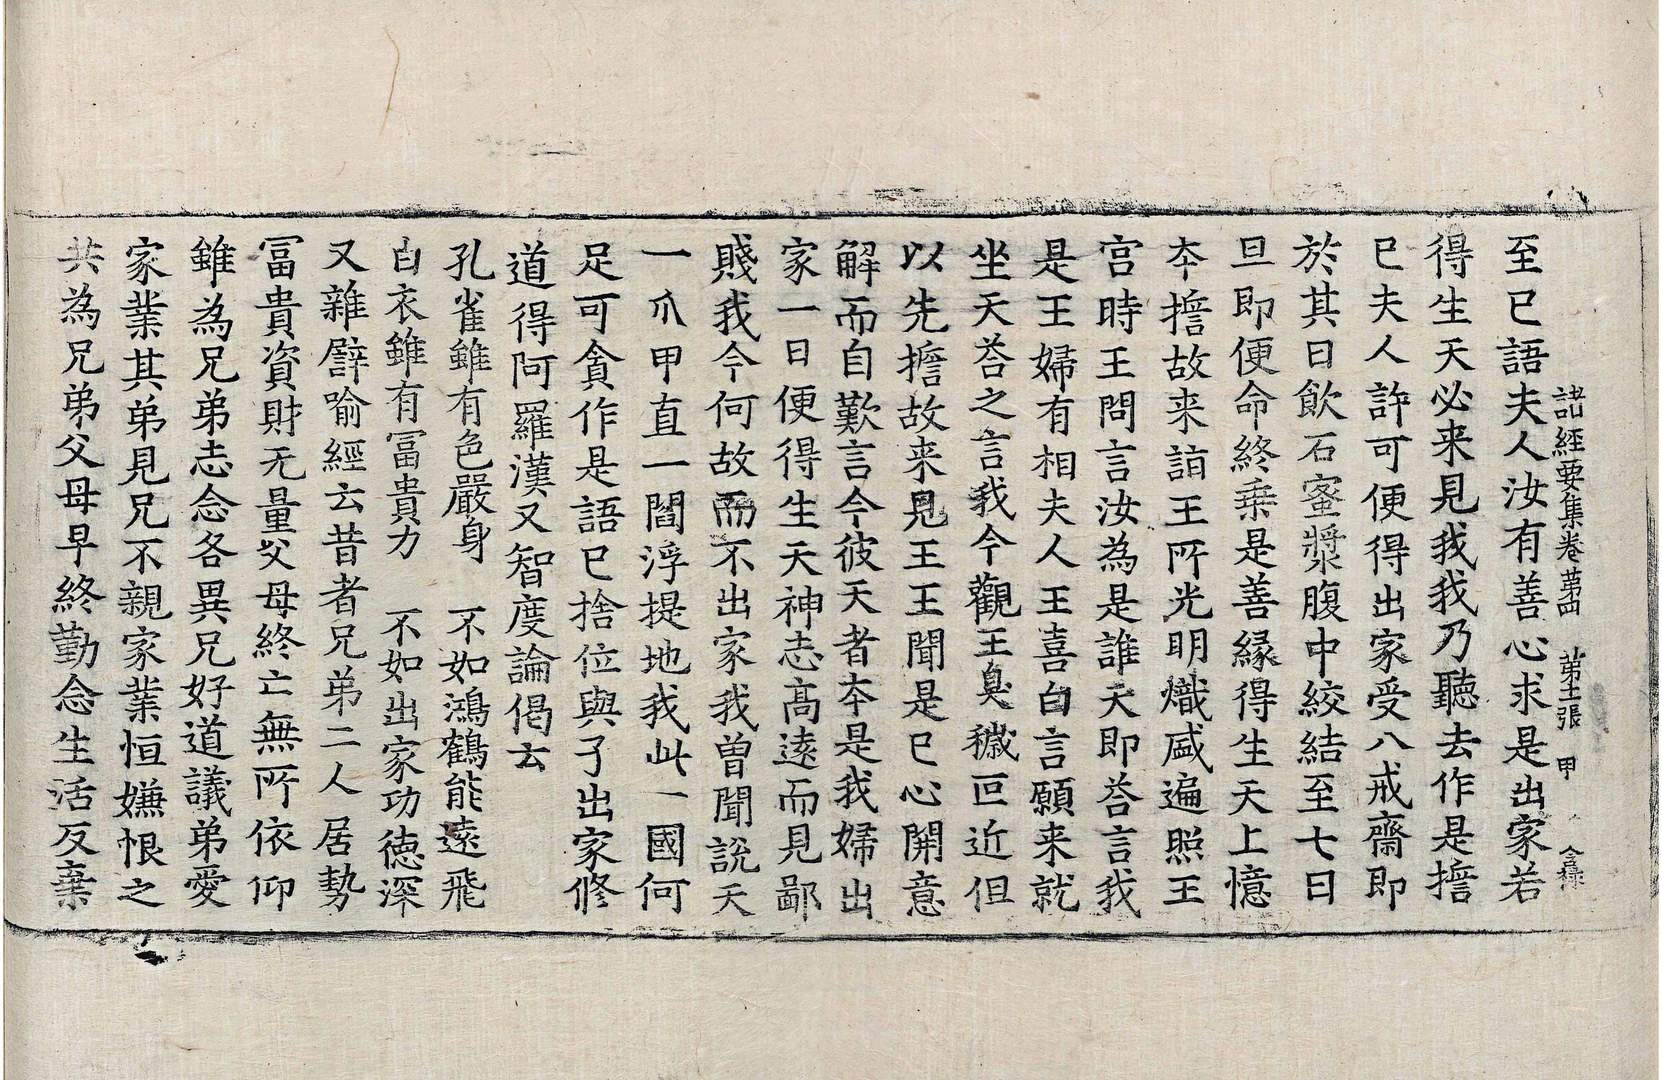 諸經要集卷第四 第十一張 甲
至已語夫人汝有善心求是出家若
得生天必来見我我乃聽去作是擔
已夫人許可便得出家受八戒齋即
於其日飲石蜜漿腹中絞結至七日
旦即便命終乗是善縁得生天上憶
夲擔故来詣王所光明熾盛遍照王
宮時王問言汝為是誰天即荅言我
是王婦有相夫人王喜白言願来就
坐天荅之言我今觀王臭穢叵近但
以先擔故来見王王聞是已心開意
解而自歎言今彼天者夲是我婦出
家一日便得生天神志髙逺而見鄙
賤我今何故而不出家我曽聞說天
一爪甲直一閻浮提地我此一國何
足可貪作是語已捨位與子出家修
道得阿羅漢又智度論偈云
孔雀雖有色嚴身 不如鴻鶴能逺飛
白衣雖有冨貴力 不如出家功徳深
又雜譬喻經云昔者兄弟二人居勢
冨貴資財无量父母終亡無所依仰
雖為兄弟志念各異兄好道議弟愛
家業其弟見兄不親家業恒嫌恨之
共為兄弟父母早終勤念生活反棄